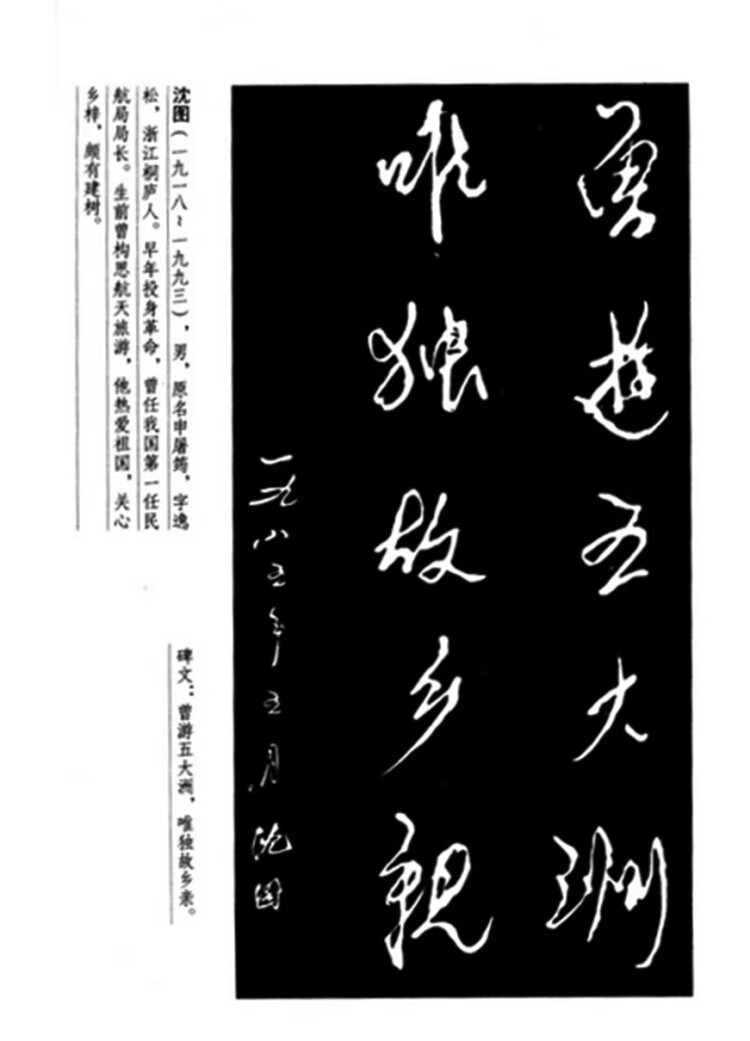 曾遊五大洲
唯独故乡親
一九八五年五月沈图
沈图(一九一八~一九九三),男,原名申屠筠,字逸
松,浙江桐庐人。早年投身革命,曾任我国第一任民
航局局长。生前曾构思航天旅游,他热爱祖国,关心
乡梓,颇有建树。
碑文:曾游五大洲,唯独故乡亲。